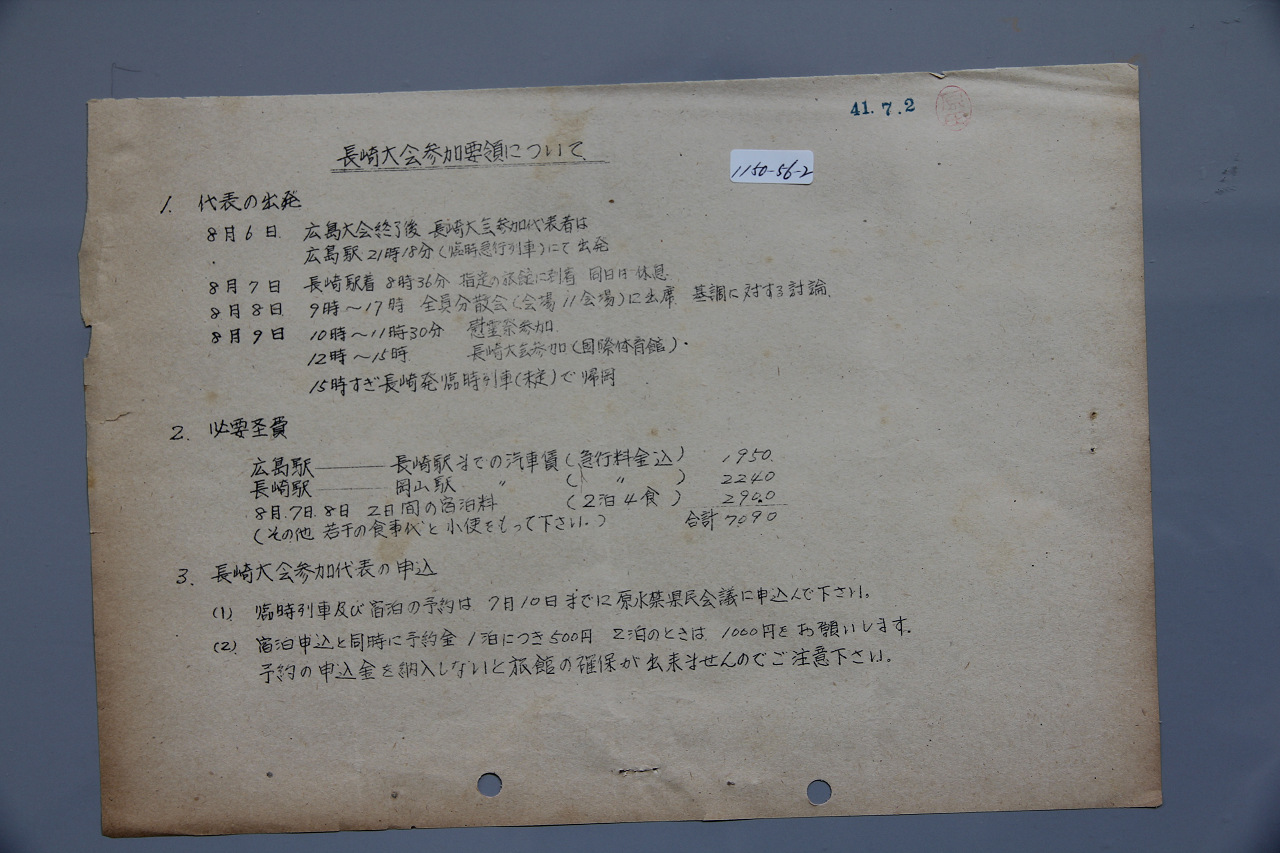 41.7.2
1150-56-2
長崎大会参加要領について
1. 代表の出発
8月6日 広島大会終了後 長崎大会参加代表者は
広島駅21時18分(臨時急行列車)にて出発
8月7日 長崎駅着 8時36分 指定の旅館に到着 同日は休息
8月8日 9時～17時 全員分散会(会場11会場)に出席 基調に対する討論.
8月9日 10時～11時30分 慰霊祭参加.
12時～15時 長崎大会参加(国際体育館)・
15時すぎ長崎発臨時列車(未定)で帰岡
2. 必要圣費
広島駅――長崎駅までの汽車賃(急行料金込) 1950.
長崎駅――岡山駅 〃 ( 〃 ) 2240
8月.7日.8日 2日間の宿泊料 (2泊4食) 2900
(その他 若干の食事代と小使をもって下さい.) 合計7090
3. 長崎大会参加代表の申込
(1) 臨時列車及び宿泊の予約は 7月10日までに原水禁県民会議に申込んで下さい。
(2) 宿泊申込と同時に予約金 1泊につき500円 2泊のときは 1000円をお願いします.
予約の申込金を納入しないと旅館の確保が出来ませんのでご注意下さい。